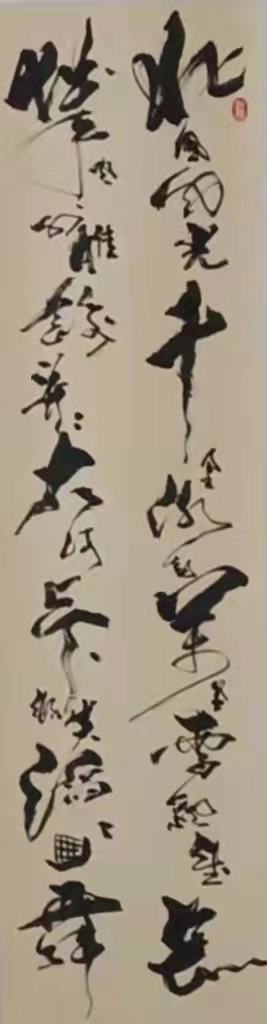 北國风光千里冰封万里雪飘望长
城内外惟餘莽莽大河上下顿失滔滔舞